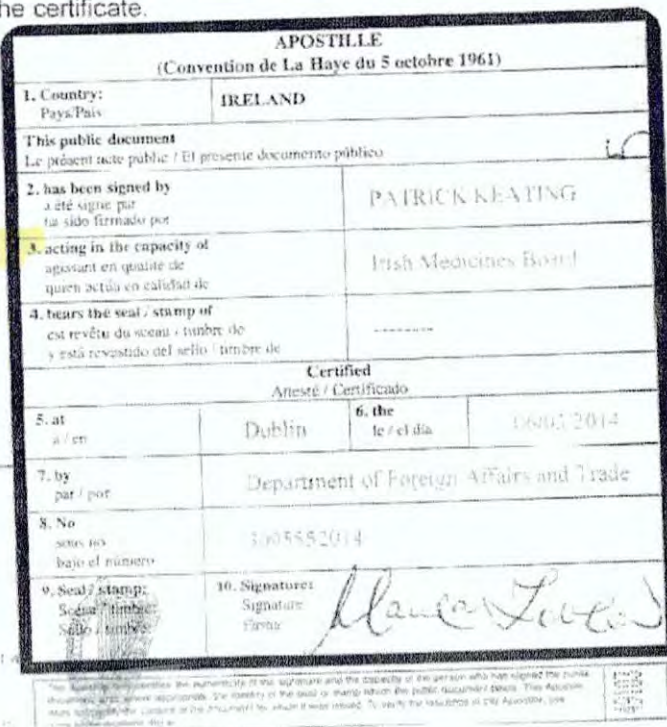 he certificate.
APOSTILLE
(Convention de La Haye du 5 octobre 1961)
1. Country:
Pays/País
IRELAND
This public document
Le présent acte public / El presente documento público
2. has been signed by
a été signé par
ha sido firmado por
PATRICK KEATING
3. acting in the capacity of
agissant en qualité de
quien actúa en calidad de
Irish Medicines Board
4. bears the seal / stamp of
est revêtu du sceau / timbre de
y está revestido del sello / timbre de
--------
Certified
Attesté / Certificado
5. at
a / en
Dublin
6. the
le / el día
2014
7. by
par / por
Department of Foreign Affairs and Trade
8. No
sous no
bajo el número
9. Seal / stamp:
Sceau / timbre:
Sello / timbre:
10. Signature:
Signature
Firma: